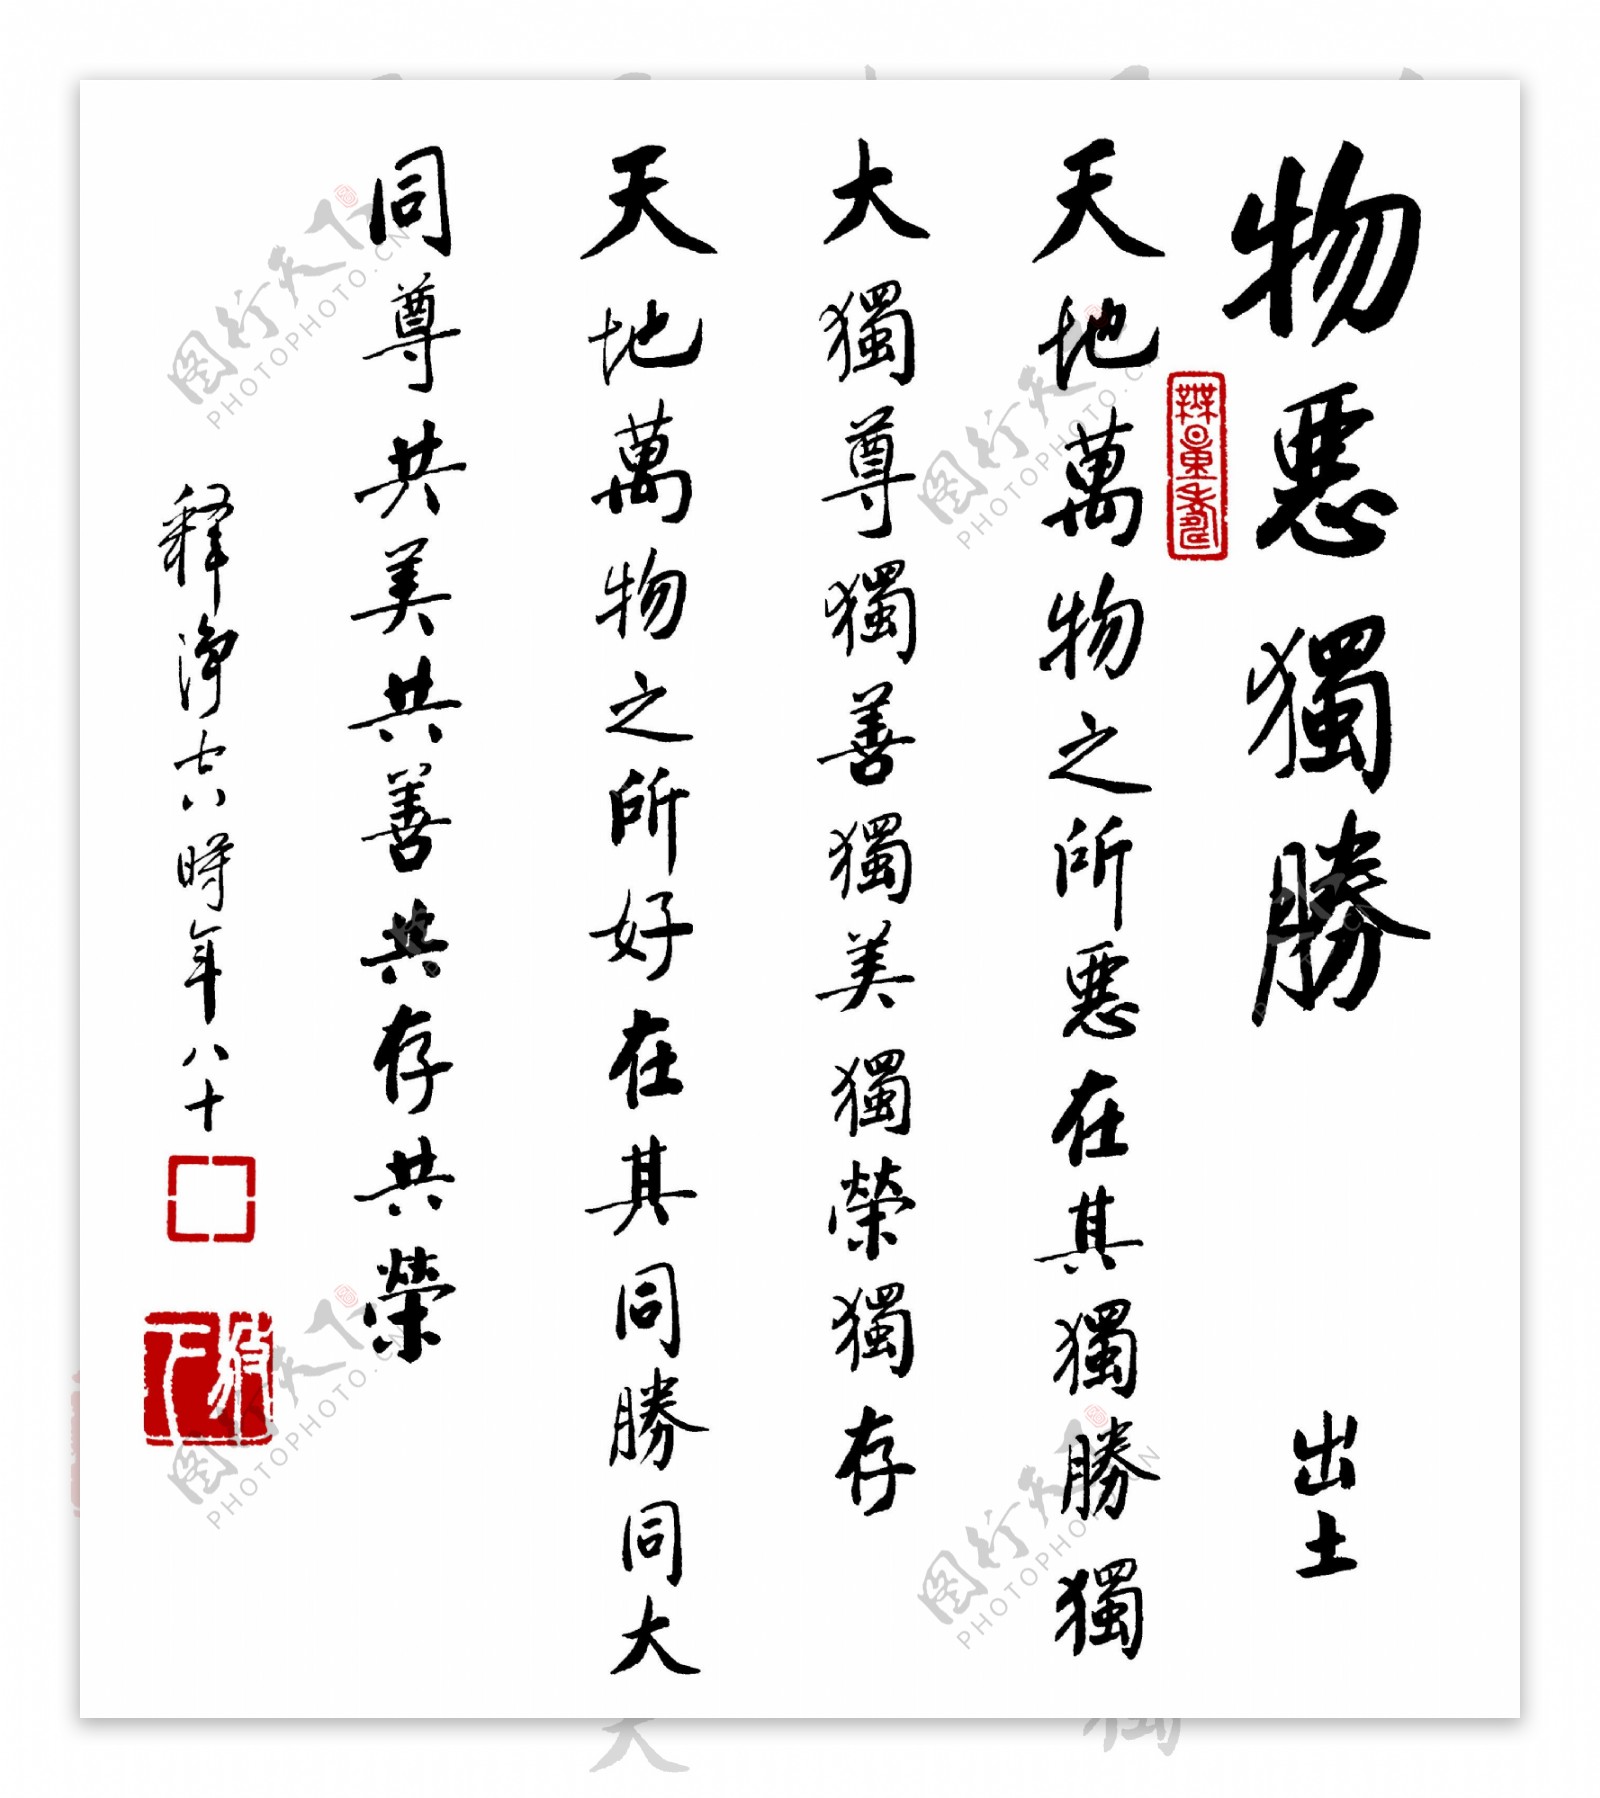 物惡獨勝 出土
天地萬物之所惡在其獨勝獨
大獨尊獨善獨美獨榮獨存
天地萬物之所好在其同勝同大
同尊共美共善共存共榮
釋淨六時年八十
图行天下
PHOTOPHOTO.CN